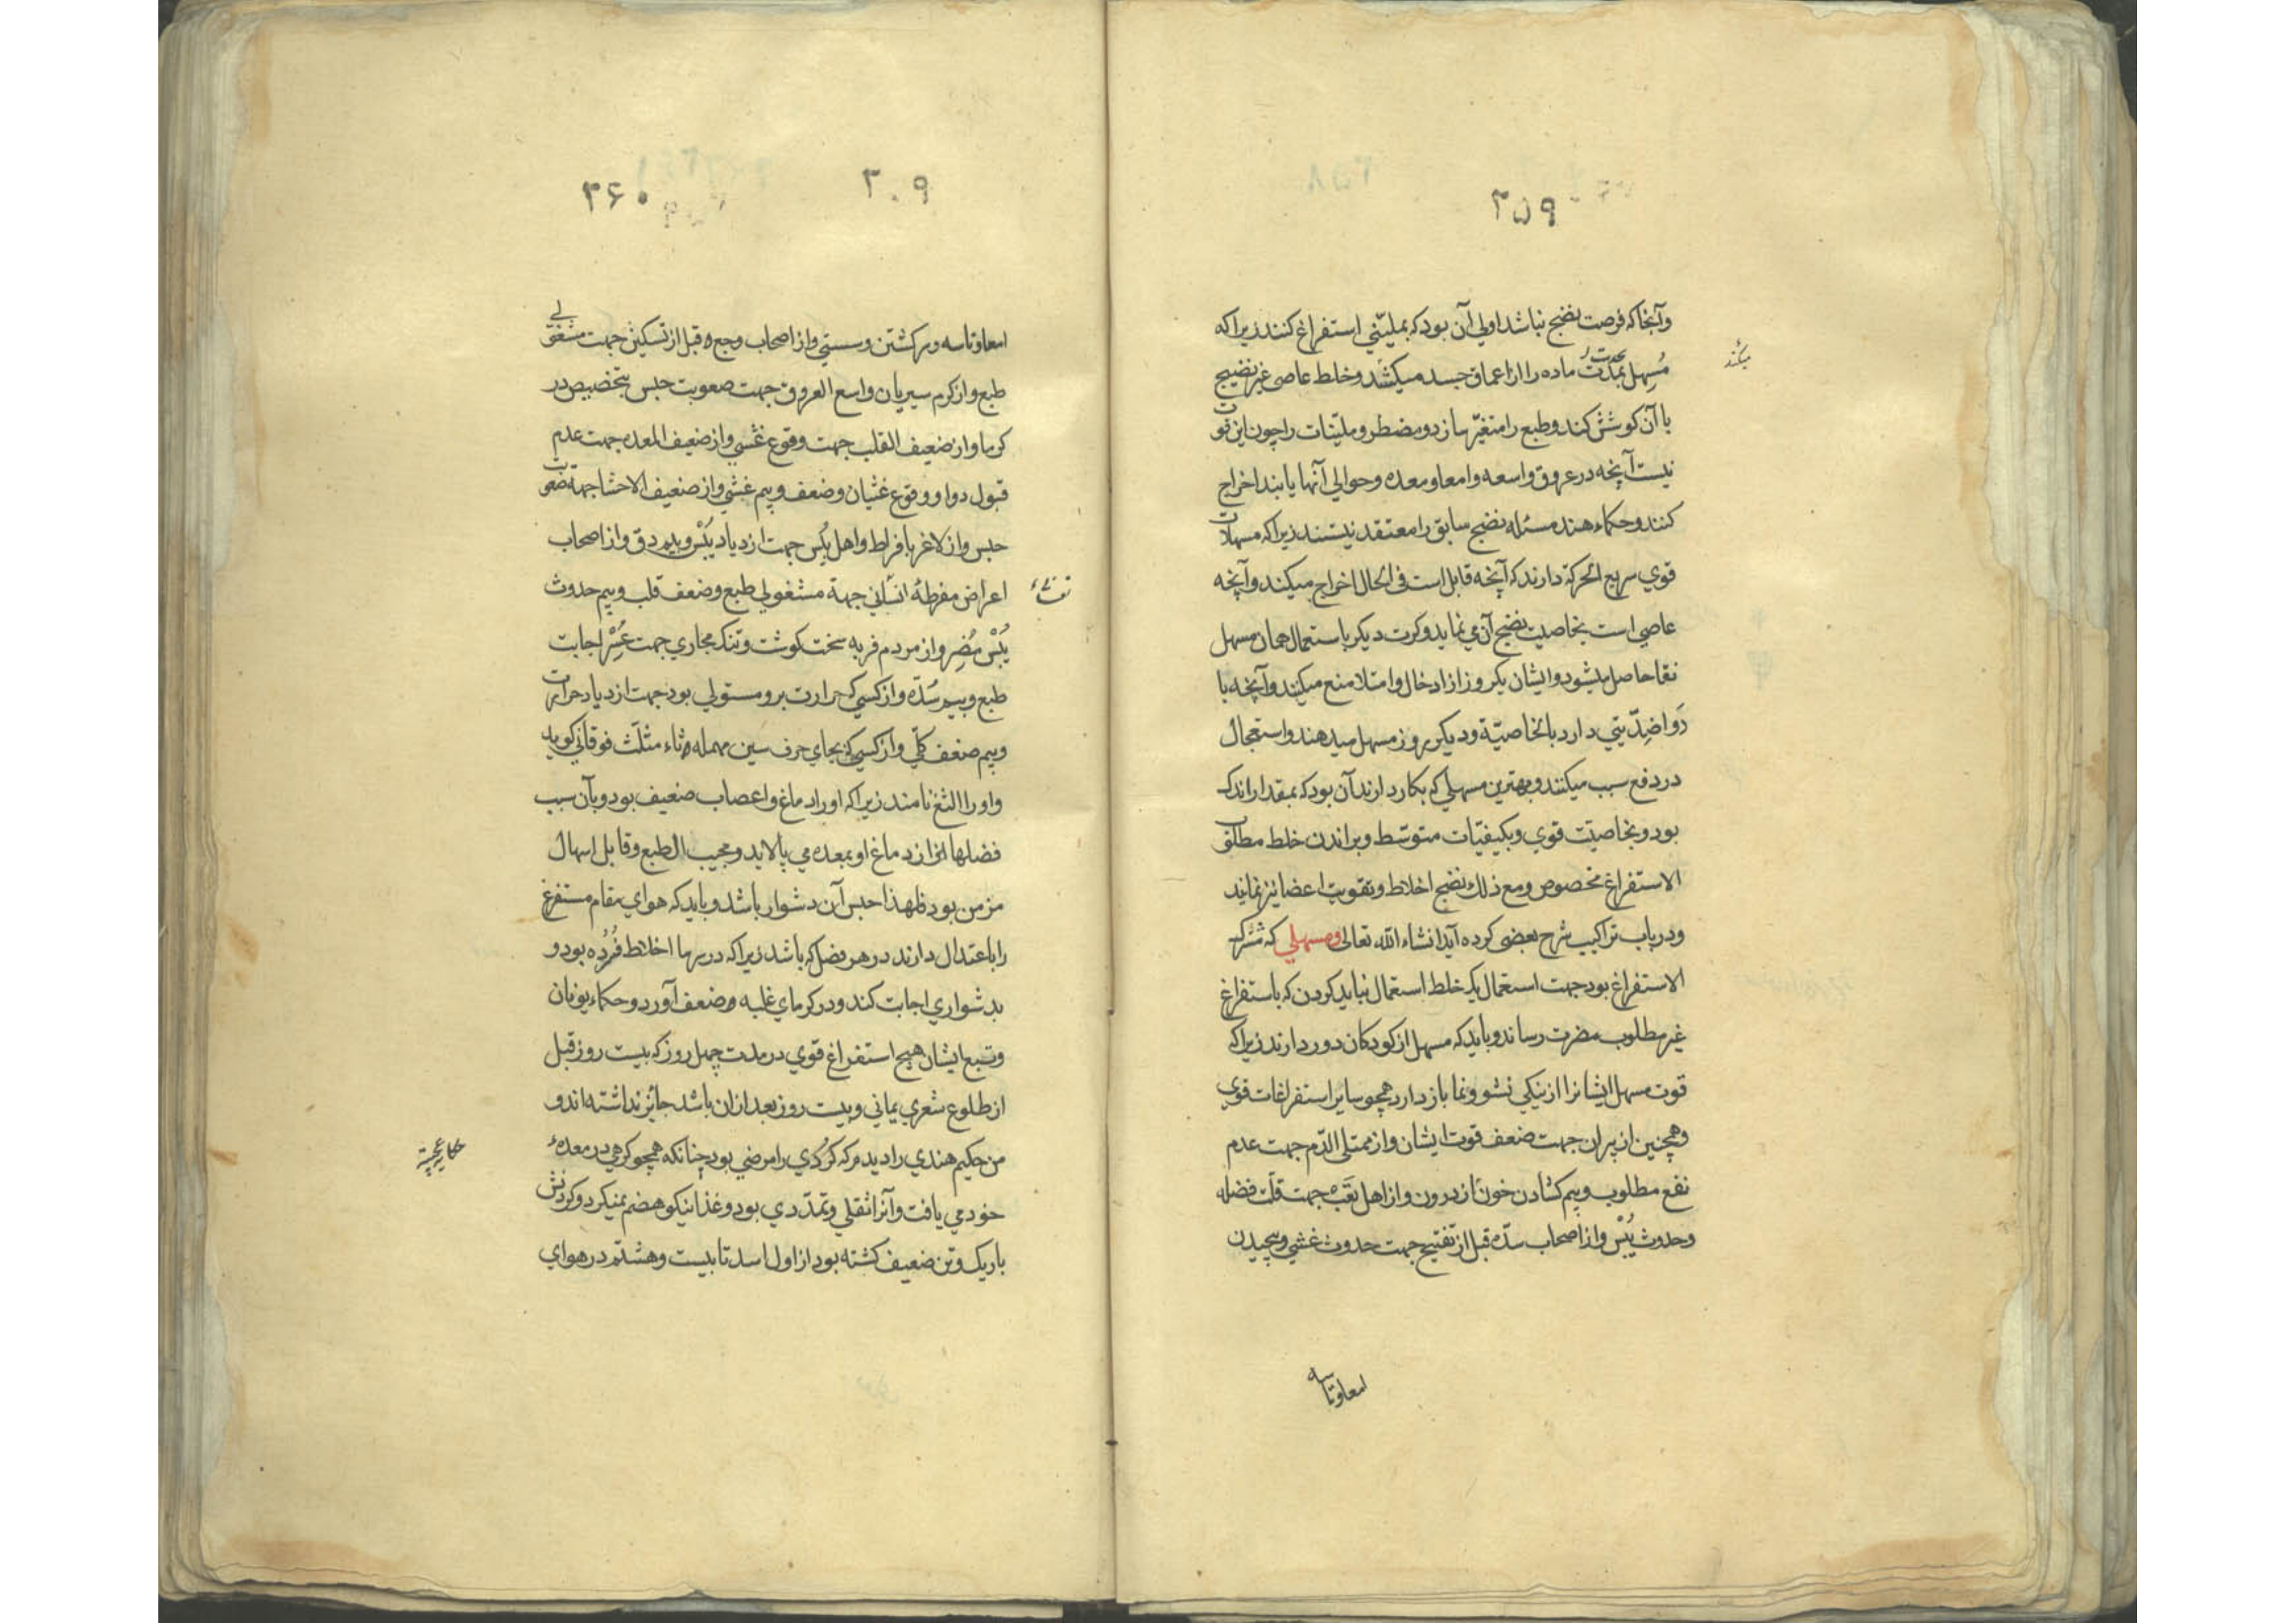 ۳۵۹
وآنجا که فرصت نضج نباشد اولی آن بود که بملینی استفراغ کنند زیرا که
مُسهِل بحدّت ماده را از اعماق جسد میکشد وخلط عاصی غیر نضیج
با آن کوشش کند وطبع را متغیّر سازد ومضطر وملیّنات را چون این قوت
نیست آنچه در عروق واسعه وامعا ومعده وحوالی آنها یابند اخراج
کنند وحکماء هند مسئله نضج سابق را معتقد نیستند زیرا که مسهلات
قوی سریع الحرکة دارند که آنچه قابل است فی الحال اخراج میکند وآنچه
عاصی است بخاصیت نضج آن می نماید وکرت دیگر باستعمال همان مسهل
نقا حاصل میشود وایشان یکروز از ادخال وامتلا منع میکنند وآنچه با
دَوا ضِدّیتی دارد بالخاصیّة ودیگر روز مسهل میدهند واستعجال
در دفع سبب میکنند وبهترین مسهلی که بکار دارند آن بود که بمقدار اندک
بود وبخاصیّت قوی وبکیفیّات متوسّط وبراندن خلط مطلوب
الاستفراغ مخصوص ومع ذلک نضج اخلاط وتقویت اعضا نیز نماید
ودر باب تراکیب شرح بعضی کرده آید انشاء الله تعالی ومسهلی که مشترک
الاستفراغ بود جهت استعمال یک خلط استعمال نباید کردن که باستفراغ
غیر مطلوب مضرت رساند وباید که مسهل از کودکان دور دارند زیرا که
قوت مسهل ایشانرا از نیکی نشو ونما باز دارد همچو سایر استفراغات قوی
وهمچنین از پیران جهت ضعف قوت ایشان واز ممتلی الدّم جهت عدم
نفع مطلوب وبیم کشادن خون از درون واز اهل تَعَب جهت قلّت فضله
وحدوث یُبْس واز اصحاب سدّه قبل از تفتیح جهت حدوث غشی وپیچیدن
امعا وتاسه
میکند
۳۰۹
۳۶۰
امعا وتاسه وسر کشتن وسستی واز اصحاب وجع قبل از تسکین جهت مشغولی
طبع واز گرم سیریان واسع العروق جهت صعوبت حبس بتخصیص در
گرما واز ضعیف القلب جهت وقوع غشی واز ضعیف المعده جهت عدم
قبول دوا ووقوع غثیان وضعف وبیم غشی واز ضعیف الاحشا جهة صعوبت
حبس واز لاغر بافراط واهل یُبْس جهت ازدیاد یُبْس وبیم دق واز اصحاب
اعراض مفرطهٔ جهة مشغولی طبع وضعف قلب وبیم حدوث
یُبْس مُضِر واز مردم فربه سخت گوشت وتنگ مجاری جهت عُسْر اجابت
طبع وبیم سُدّه واز کسی که حرارت برو مستولی بود جهت ازدیاد حرارت
وبیم ضعف کلّی واز کسی که بجای حرف سین مهمله ثاء مثلّث فوقانی گوید
واو را الثغ نامند زیرا که او را دماغ واعصاب ضعیف بود وبآن سبب
فضلها از دماغ او بمعده می پالاید ومجیب الطبع وقابل اسهال
مزمن بود فلهذا حبس آن دشوار باشد وباید که هوای مقام مستفرغ
را باعتدال دارند در هر فصل که باشد زیرا که در سرما اخلاط فُسُرده بود و
بدشواری اجابت کند ودر گرمای غلبه ضعف آورد وحکماء یونان
وتبع ایشان هیچ استفراغ قوی در مدت چهل روز که بیست روز قبل
از طلوع شعری یمانی وبیست روز بعد از آن باشد جائز نداشته اند و
من حکیم هندی را دیدم که کُردی را مرضی بود چنانکه همچو گرهی در معدهٔ
خود می یافت وآنرا ثقلی وتمدّدی بود وغذا نیکو هضم نمیکرد وگردنش
باریک وتن ضعیف گشته بود از اول اسد تا بیست وهشتم در هوای
حکایة عجیبة